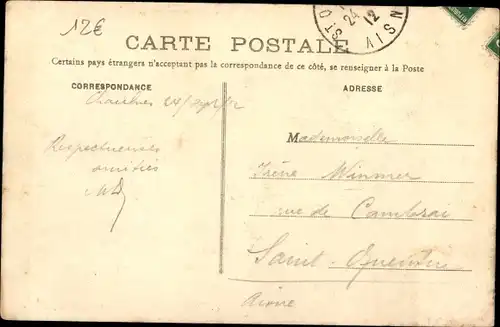 12€
24
12
AISN
CARTE POSTALE
Certains pays étrangers n'acceptant pas la correspondance de ce côté, se renseigner à la Poste
CORRESPONDANCE
ADRESSE
24/
Respectueuses
amitiés
Mademoiselle
Irène Wimmer
rue de Cambrai
Saint-Quentin
Aisne